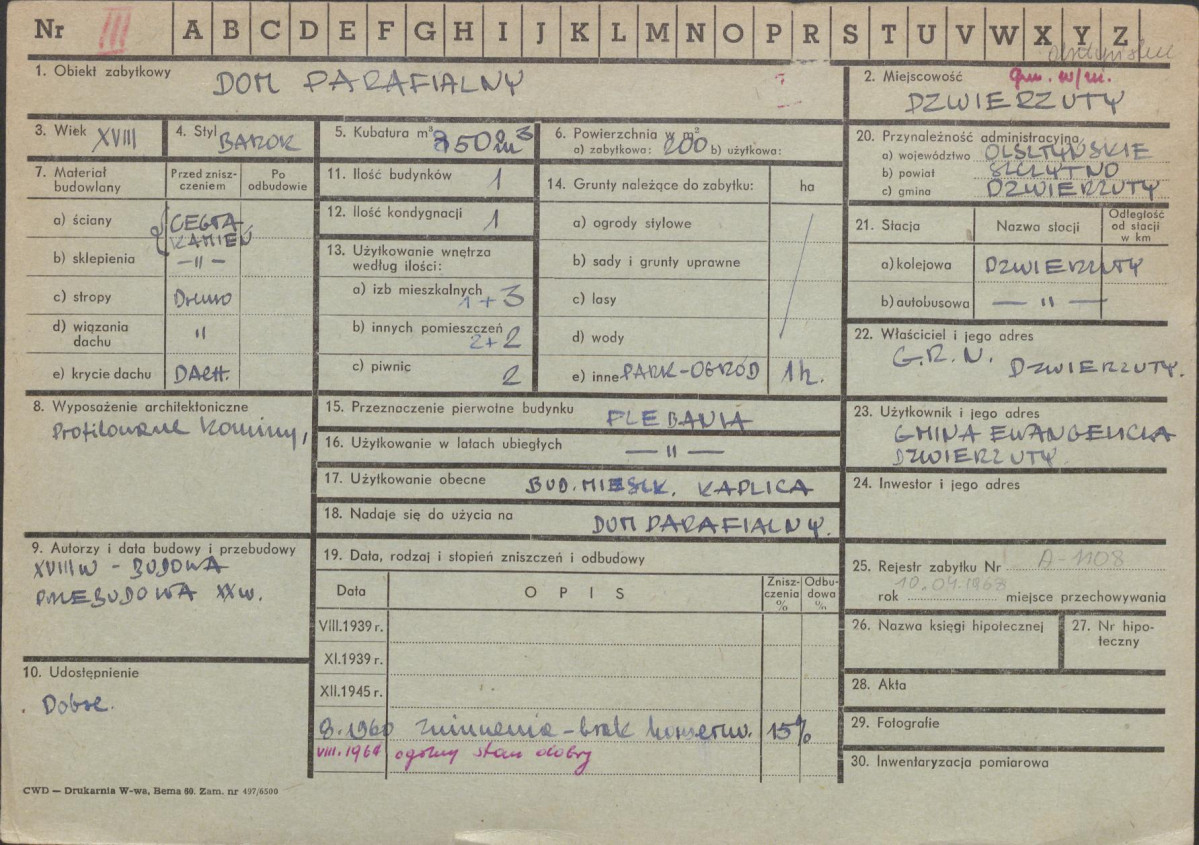 Nr III A B C D E F G H I J K L M N O P R S T U V W X Y Z
1. Obiekt zabytkowy DOM PARAFIALNY
2. Miejscowość gm. w/m.
DZWIERZUTY
3. Wiek XVIII
4. Styl BAROK
5. Kubatura m³ 750 m³
6. Powierzchnia w m²
a) zabytkowa: 200 b) użytkowa:
20. Przynależność administracyjna
a) województwo OLSZTYŃSKIE
b) powiat SZCZYTNO
c) gmina DZWIERZUTY
7. Materiał budowlany
Przed zniszczeniem
Po odbudowie
a) ściany CEGŁA
KAMIEŃ
b) sklepienia — " —
c) stropy Drewno
d) wiązania dachu "
e) krycie dachu DACH.
11. Ilość budynków 1
12. Ilość kondygnacji 1
13. Użytkowanie wnętrza
według ilości:
a) izb mieszkalnych
1 + 3
b) innych pomieszczeń
2 + 2
c) piwnic 2
14. Grunty należące do zabytku: ha
a) ogrody stylowe
b) sady i grunty uprawne
c) lasy
d) wody
e) inne PARK-OGRÓD 1 h.
21. Stacja
Nazwa stacji
Odległość
od stacji
w km
a) kolejowa DZWIERZUTY
b) autobusowa — " —
22. Właściciel i jego adres
G.R.N. DZWIERZUTY.
8. Wyposażenie architektoniczne
Profilowane kominy,
15. Przeznaczenie pierwotne budynku PLEBANIA
16. Użytkowanie w latach ubiegłych — " —
17. Użytkowanie obecne BUD. MIESZK. KAPLICA
18. Nadaje się do użycia na DOM PARAFIALNY.
23. Użytkownik i jego adres
GMINA EWANGELICKA
DZWIERZUTY.
24. Inwestor i jego adres
9. Autorzy i data budowy i przebudowy
XVIII W - BUDOWA
PRZEBUDOWA XX w.
19. Data, rodzaj i stopień zniszczeń i odbudowy
Data
O P I S
Zniszczenia %
Odbudowa %
VIII.1939 r.
XI.1939 r.
XII.1945 r.
8.1960 zniszczenia - brak konserw. 15%
VIII.1961 ogólny stan dobry
25. Rejestr zabytku Nr A-1108
10.04.1968
rok miejsce przechowywania
26. Nazwa księgi hipotecznej
27. Nr hipoteczny
10. Udostępnienie
Dobre.
28. Akta
29. Fotografie
30. Inwentaryzacja pomiarowa
CWD — Drukarnia W-wa, Bema 60. Zam. nr 497/6500